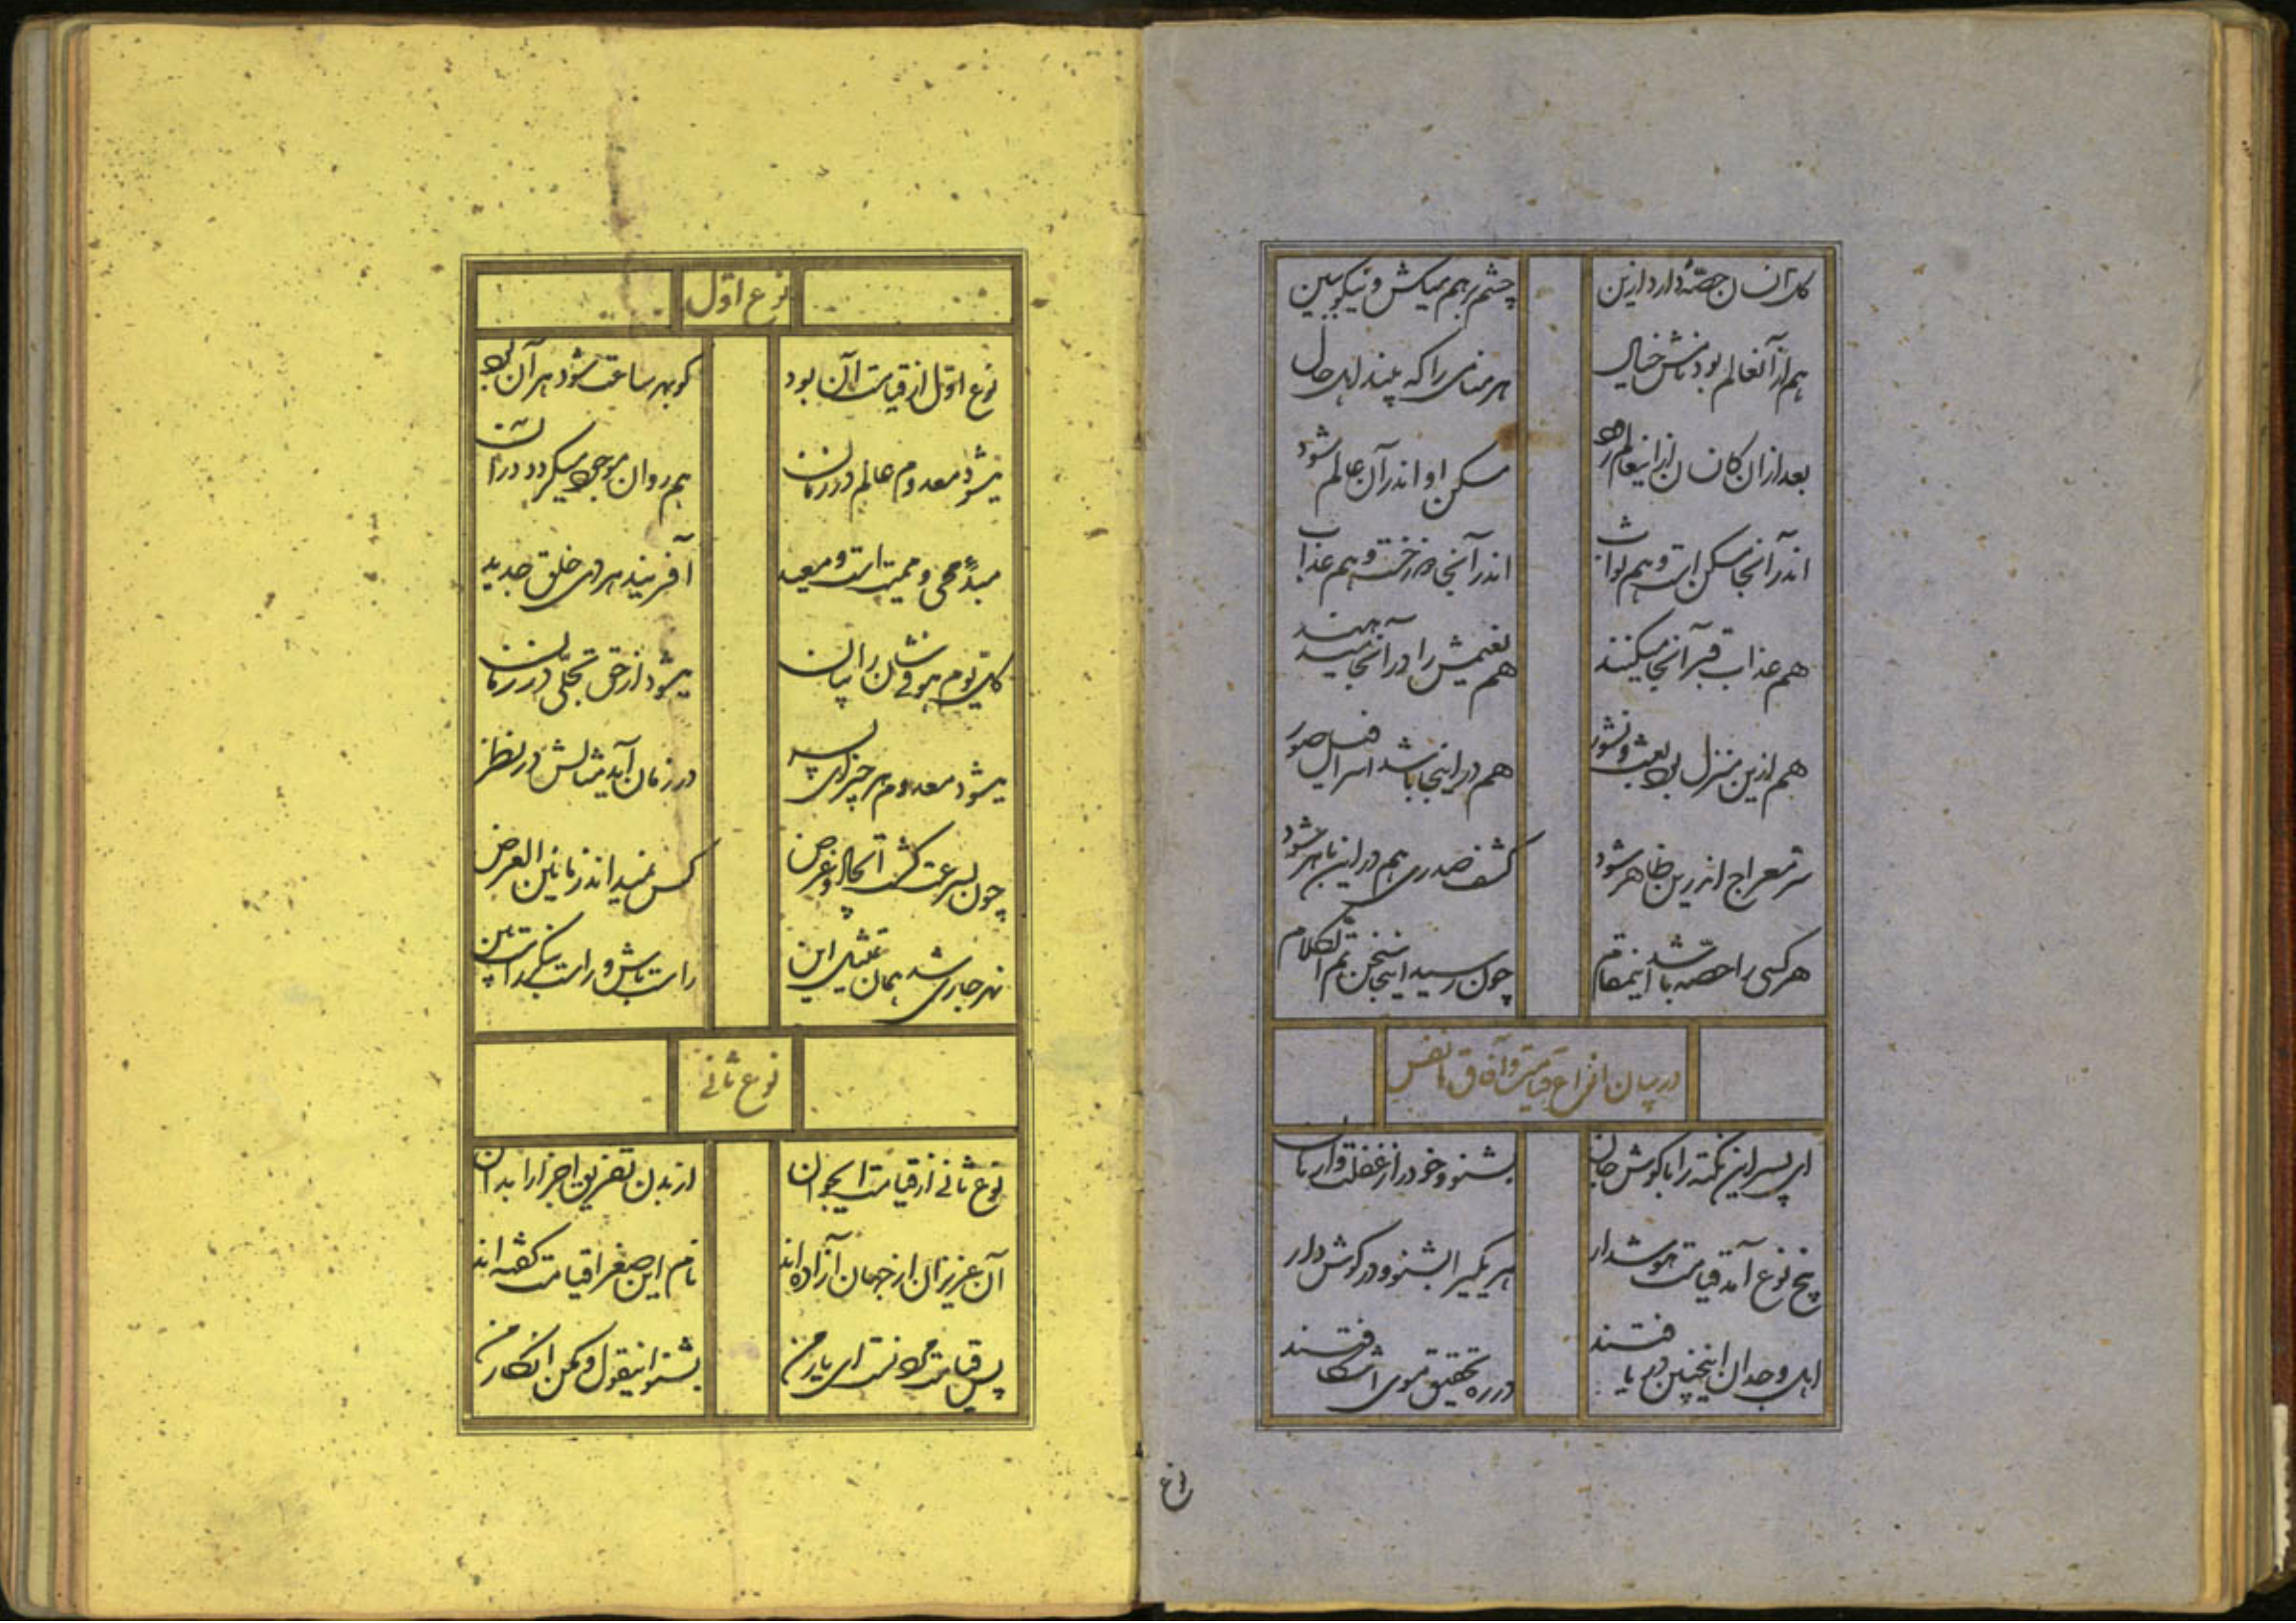 کل انسان حصّه دارد ازین
چشم بر هم میکش و نیکو ببین
هم ازآنعالم بود نامش خیال
هر منامی را که بیند اهل حال
بعد ازان کانسان ازینعالم رود
مسکن او اندر آن عالم شود
اندر آنجا مسکن است و هم ثواب
اندر آنجا دوزخست و هم عذاب
هم عذاب قبر آنجا میکنند
هم نعیمش را در آنجا میدهند
هم ازین منزل بود بعث و نشور
هم در اینجا باشد اسرافیل صور
سرّ معراج اندرین ظاهر شود
کشف صدری هم در این باهر شود
هر کسی را حصّه باشد اینمقام
چون رسید اینجا سخن تمّ الکلام
در بیان انواع قیامت و آفاق انفس
ای پسر این نکته را با گوش جان
بشنو و خود را از غفلت وارهان
پنج نوع آمد قیامت هوشدار
هر یکی را بشنو و در گوش دار
اهل وجدان اینچنین در یافتند
در ره تحقیق موی اشکافتند
نوع
نوع اوّل
نوع اوّل از قیامت آن بود
کو بهر ساعت شود هر آن بود
میشود معدوم عالم در زمان
هم روان موجود میگردد در آن
مبدأ و محیی و ممیت است و معید
آفریند هر دمی خلق جدید
کلّ یوم هو فی شان را بیان
میشود از حق تجلّی در زمان
میشود معدوم هر چیز ای پسر
در زمان آید مثالش در نظر
چون بسرعت گشت اتحال و عرض
کس نمیداند زمانین العرض
نهر جاری شد همان تمثیل این
راست باش و راست بنگر راست بین
نوع ثانی
نوع ثانی از قیامت ایجوان
از بدن تفریق اجزا را بدان
آن عزیزان از جهان آزاده اند
نام این صغرا قیامت گفته اند
پس قیامت موتست ای یار من
بشنو اینقول و مکن انکار من